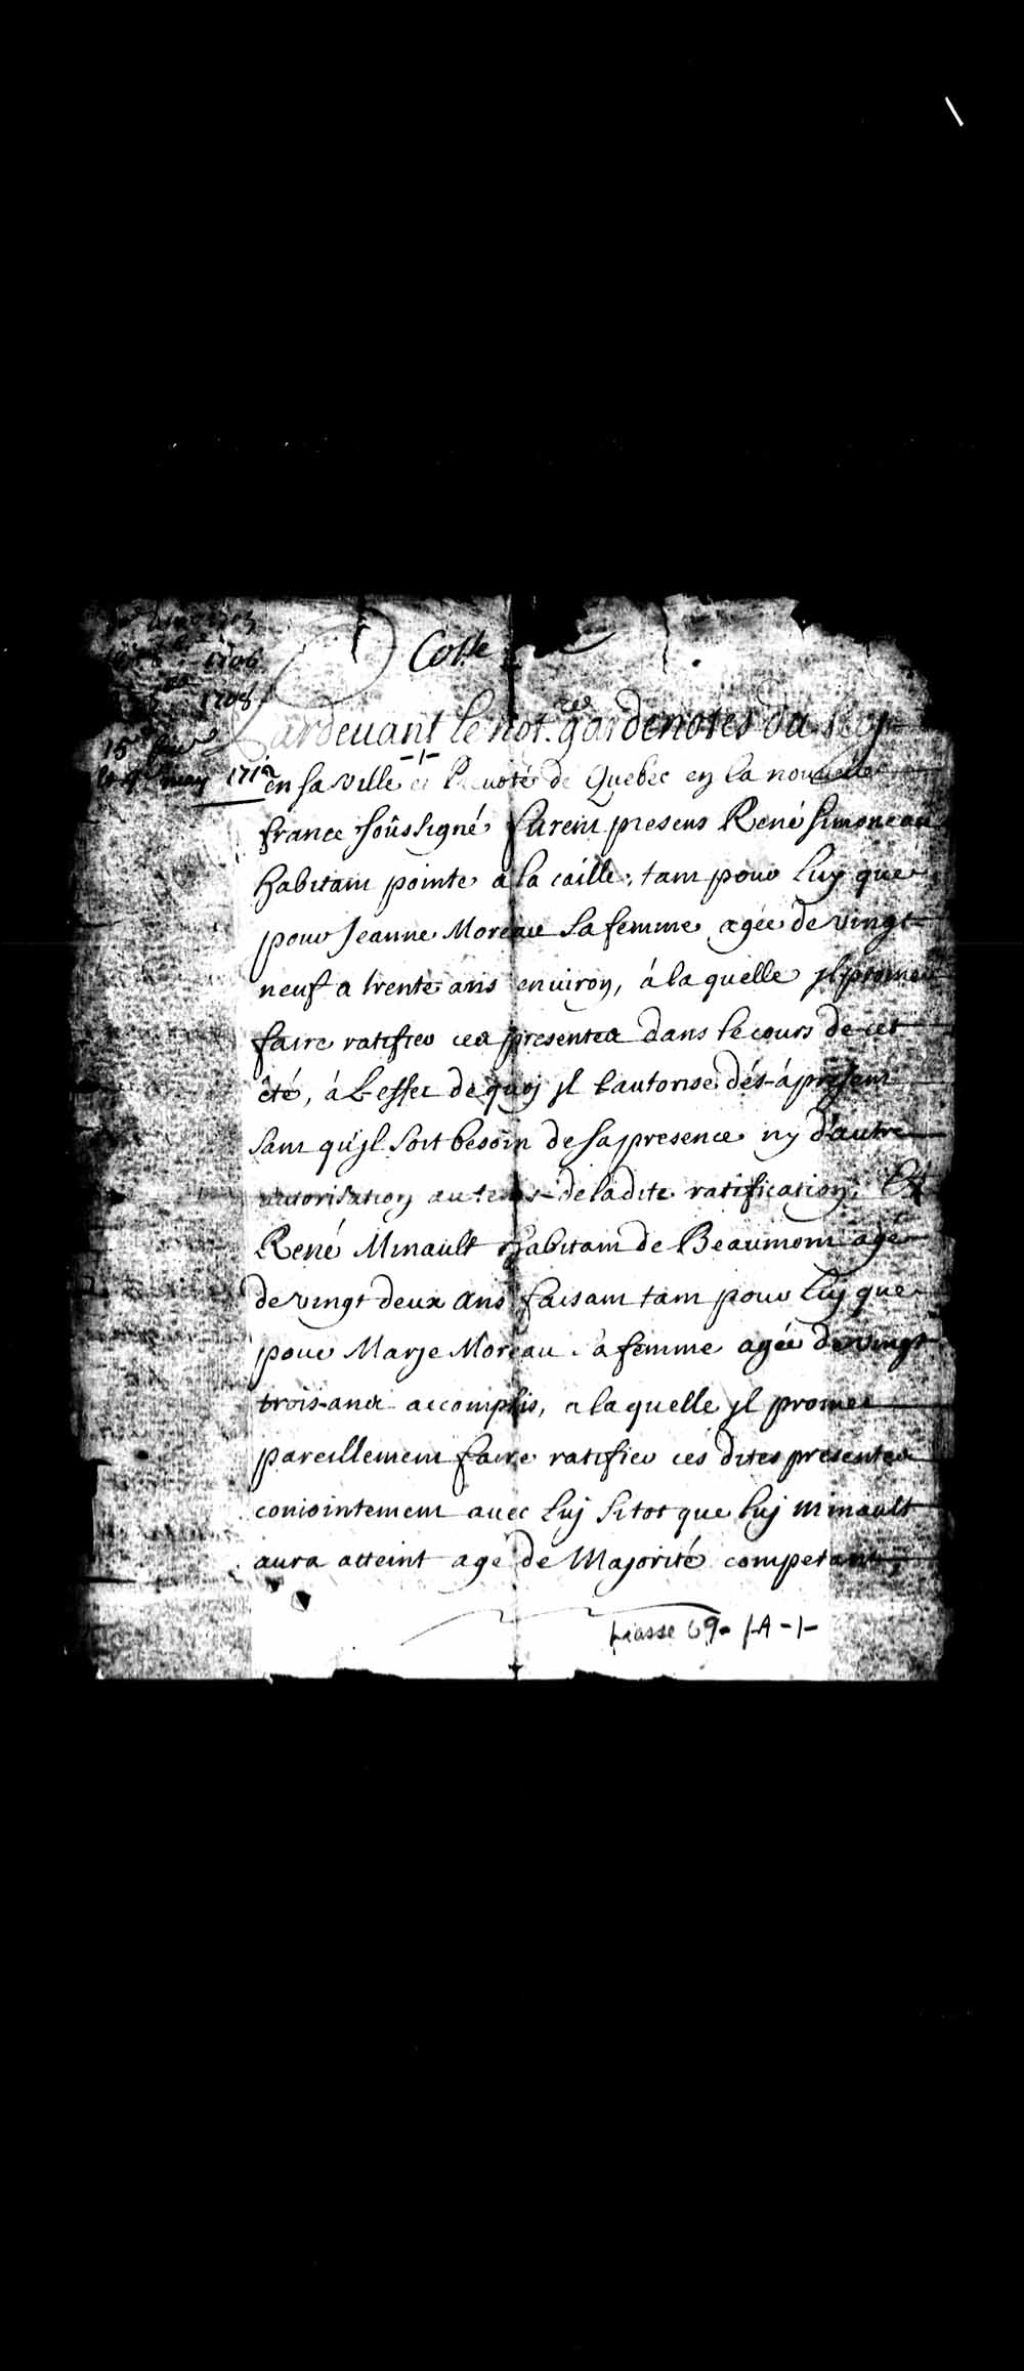 1706
1708
15e
may 1712
Coll.e
Pardevant le not.re gardenotes du Roy
-1-
en sa ville et Prevoté de Quebec en la nouvelle
france soûssigné furent presens René Simoneau
habitant pointe a la caille, tant pour luy que
pour Jeanne Moreau sa femme agée de vingt
neuf a trente ans environ, á la quelle jl promet
faire ratifier ces presentes dans le cours de cet
êté, á L'effet de quoj jl l'autorise dés-á present
sans qu'jl soit besoin de sa presence ny d'autre
autorisation au tems de ladite ratification, Et
René Minault habitant de Beaumont agé
de vingt deux ans faisant tant pour luy que
pour Marje Moreau sa femme agée de vingt
trois ans accomplis, a laquelle jl promet
pareillement faire ratifier ces dites presentes
conjointement avec luj sitot que luj minault
aura atteint age de Majorité competant,
Liasse 69- 1A-1-